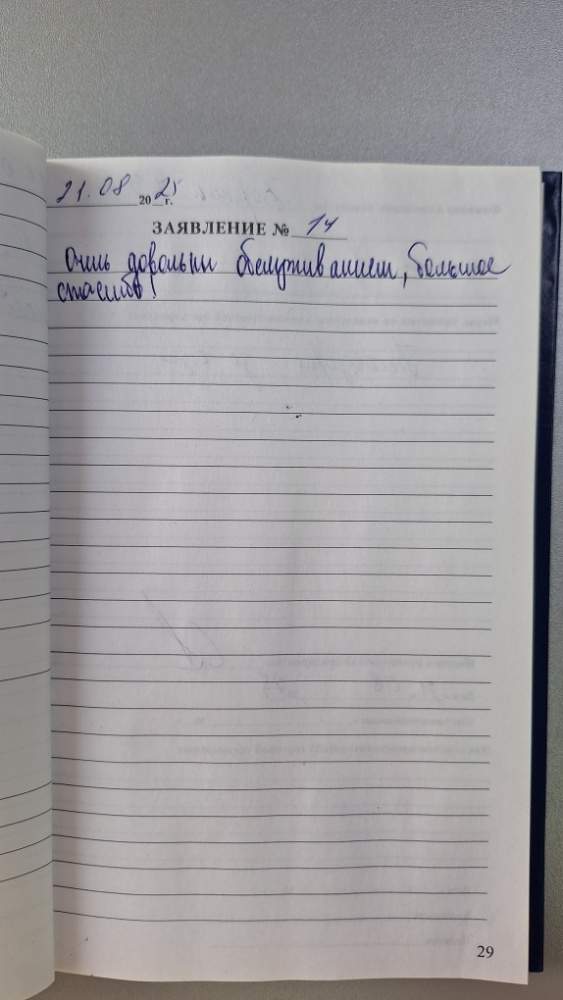 21.08 2025 г.
ЗАЯВЛЕНИЕ № 14
Очень довольны обслуживанием, большое
спасибо!
29